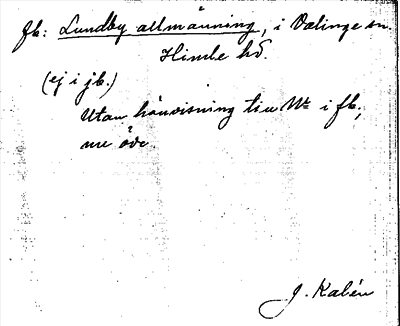 fb: Lundby allmänning, i Valinge sn.
Himle hd.
(ej i jb.)
Utan hänvisning till Nr i fb,
nu öde.
J. Kalén